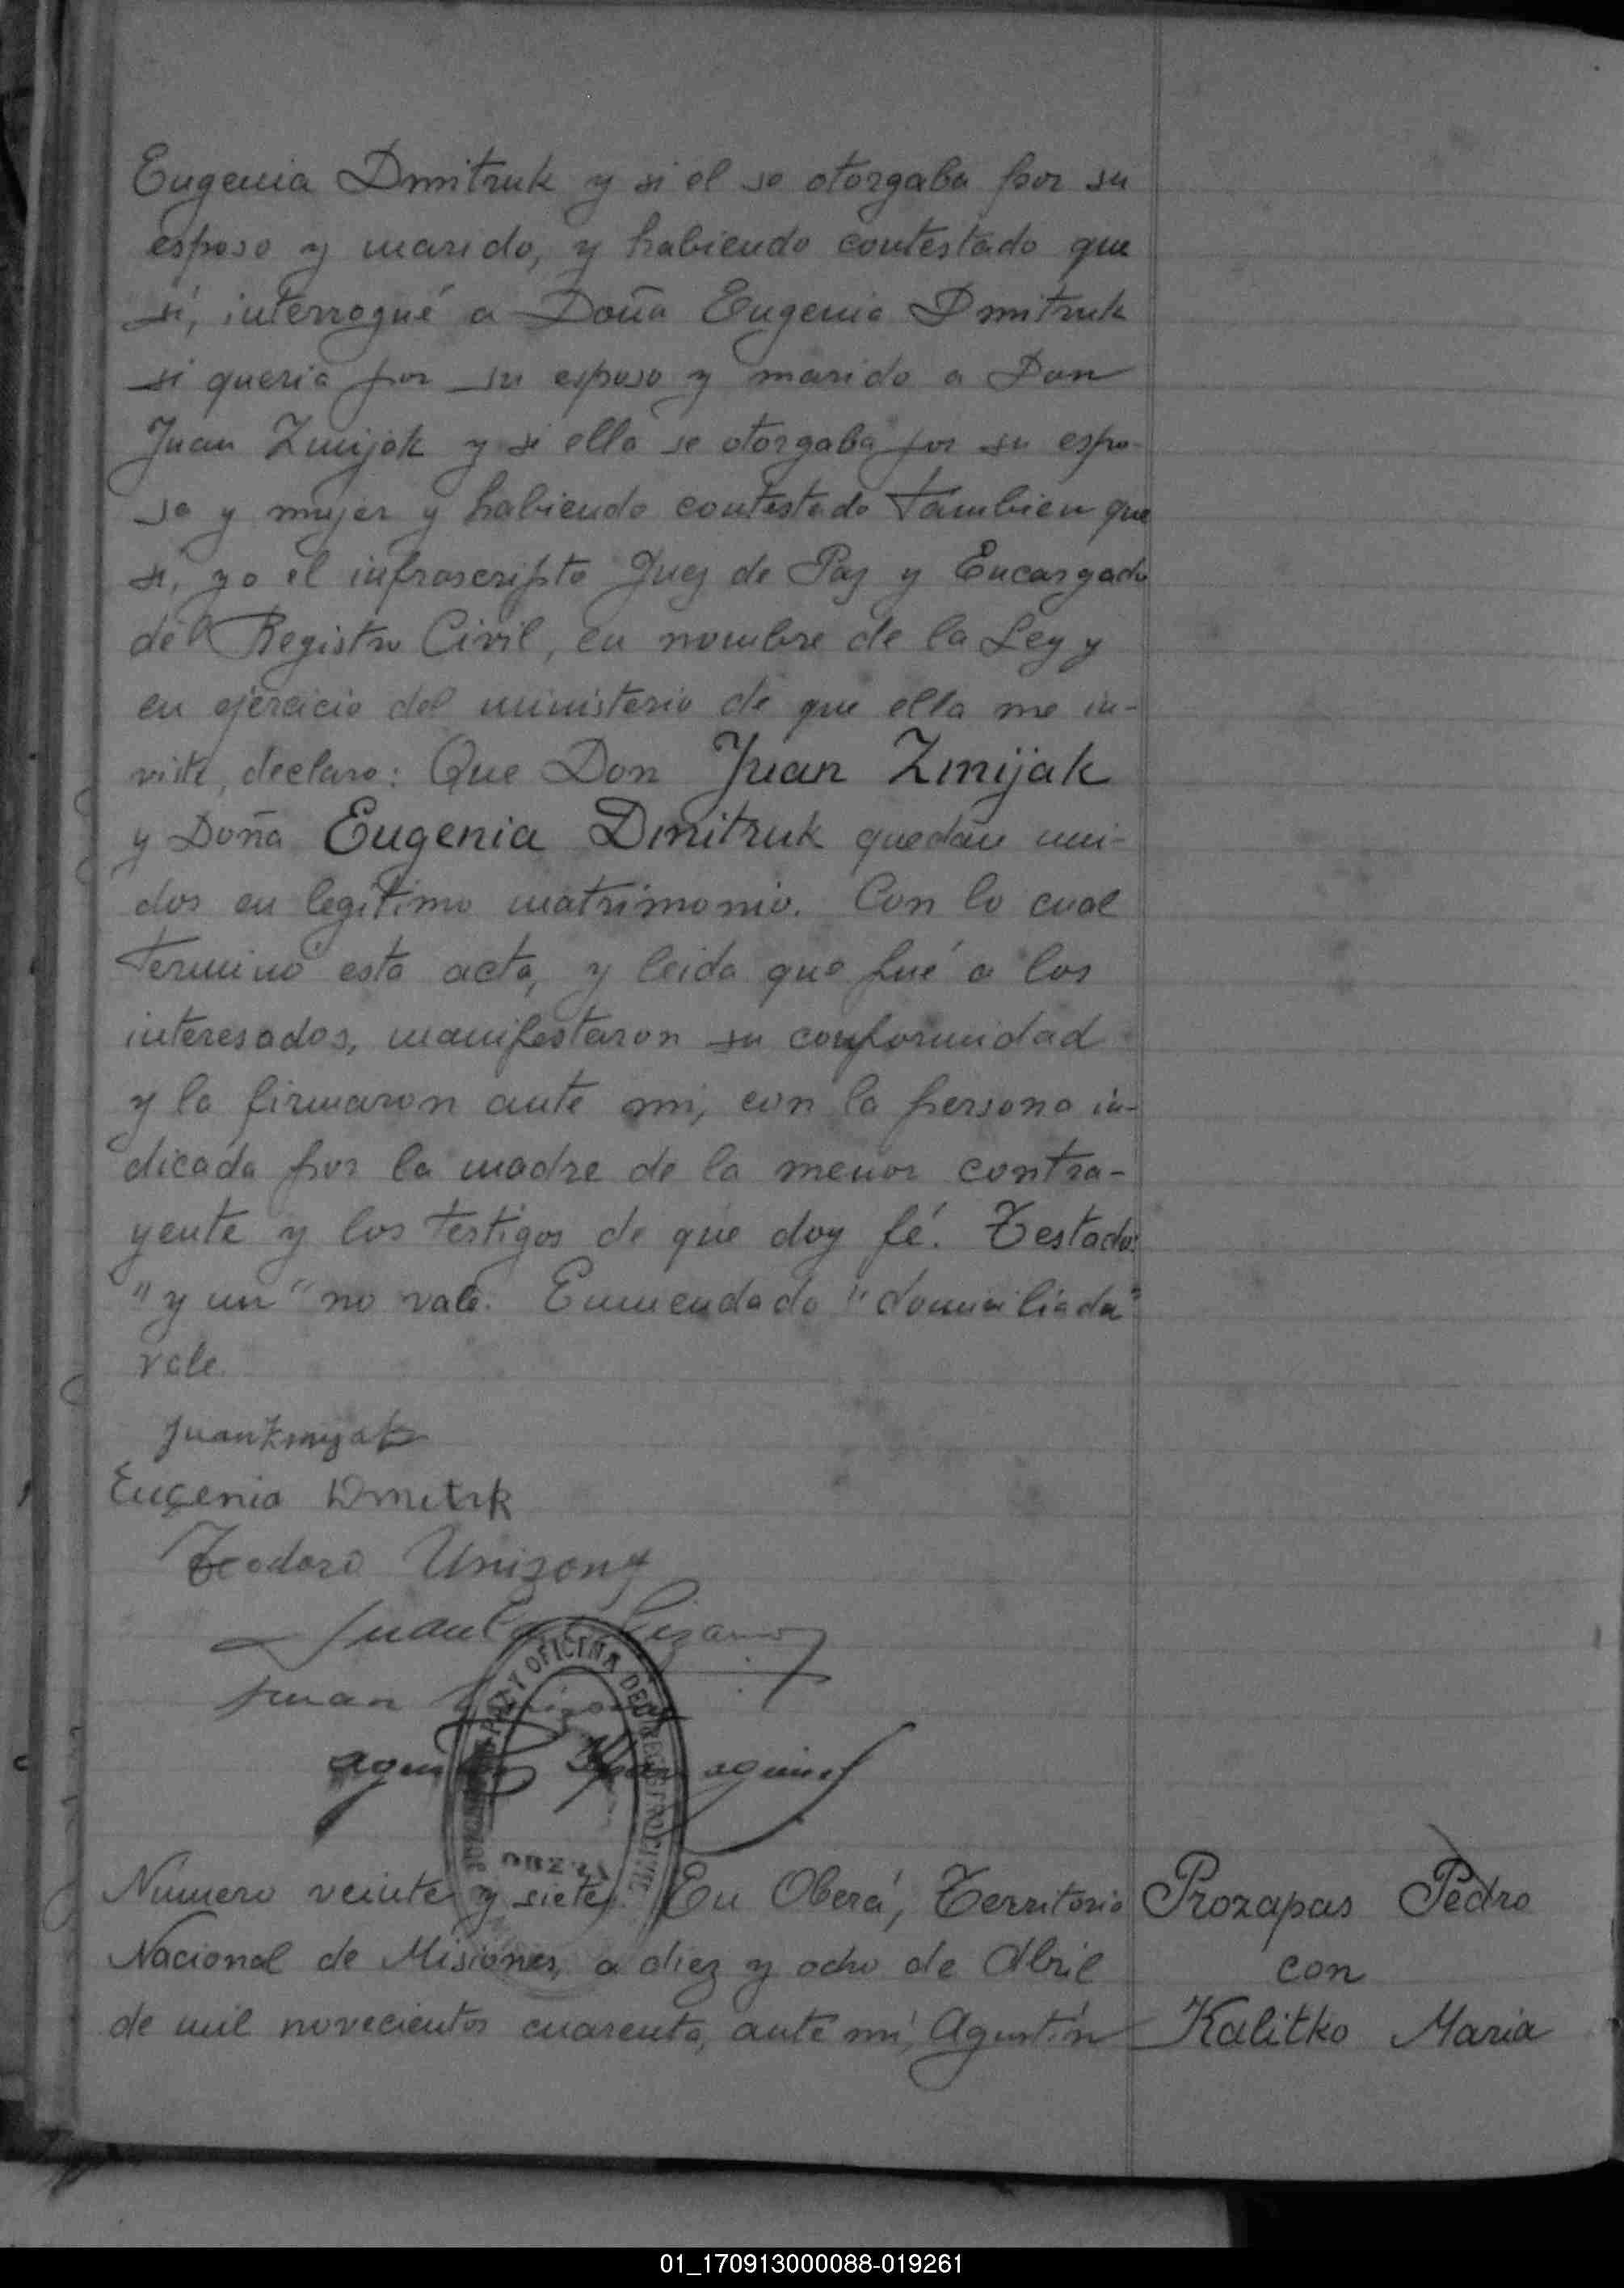 Eugenia Dmitruk y si el se otorgaba por su
esposo y marido, y habiendo contestado que
si, interrogué a Doña Eugenia Dmitruk
si queria por su esposo y marido a Don
Juan Zmijak y si ella se otorgaba por su espo-
sa y mujer y habiendo contestado tambien que
si, yo el infrascripto Juez de Paz y Encargado
del Registro Civil, en nombre de la Ley y
en ejercicio del ministerio de que ella me in-
viste, declaro: Que Don Juan Zmijak
y Doña Eugenia Dmitruk quedan uni-
dos en legítimo matrimonio. Con lo cual
termino esta acta, y leida que fué a los
interesados, manifestaron su conformidad
y la firmaron ante mi, con la persona in-
dicada por la madre de la menor contra-
yente y los testigos de que doy fé. Testado:
"y un" no vale. Enmendado "domiciliada"
vale.
Juan Zmyak
Eugenia Dmitrk
Teodoro Unizony
Juan
PAZ Y OFICINA DEL REGISTRO CIVIL
Número veinte y siete. En Oberá, Territorio
Nacional de Misiones, a diez y ocho de Abril
de mil novecientos cuarenta, ante mí, Agustín
Prozapas Pedro
con
Kalitko Maria
01_170913000088-019261